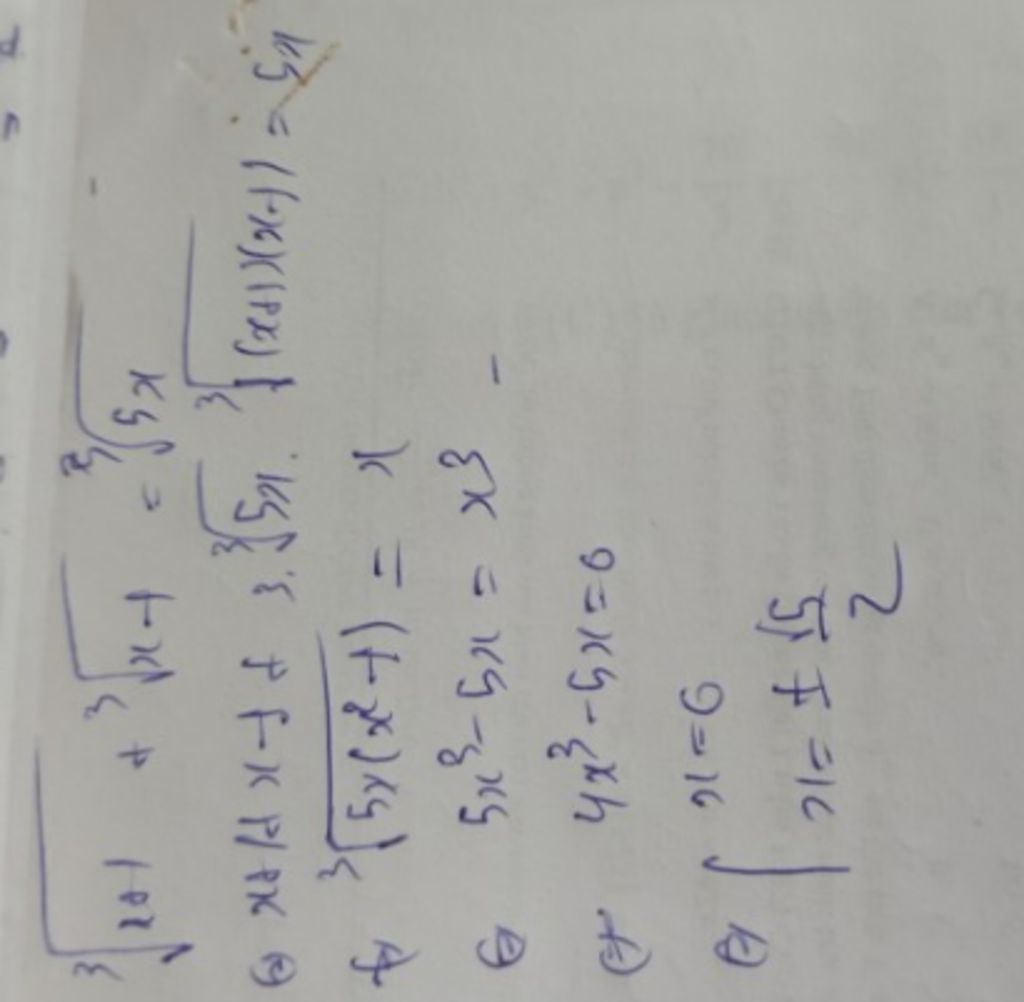 ∛(x+1) + ∛(x-1) = ∛(5x)
⇔ x+1+x-1+3.∛(5x).∛((x+1)(x-1)) = 5x
∛(5x(x²-1)) = x
⇔ 5x³-5x = x³
⇔ 4x³-5x=0
⇔ [ x=0
x= ± √5/2